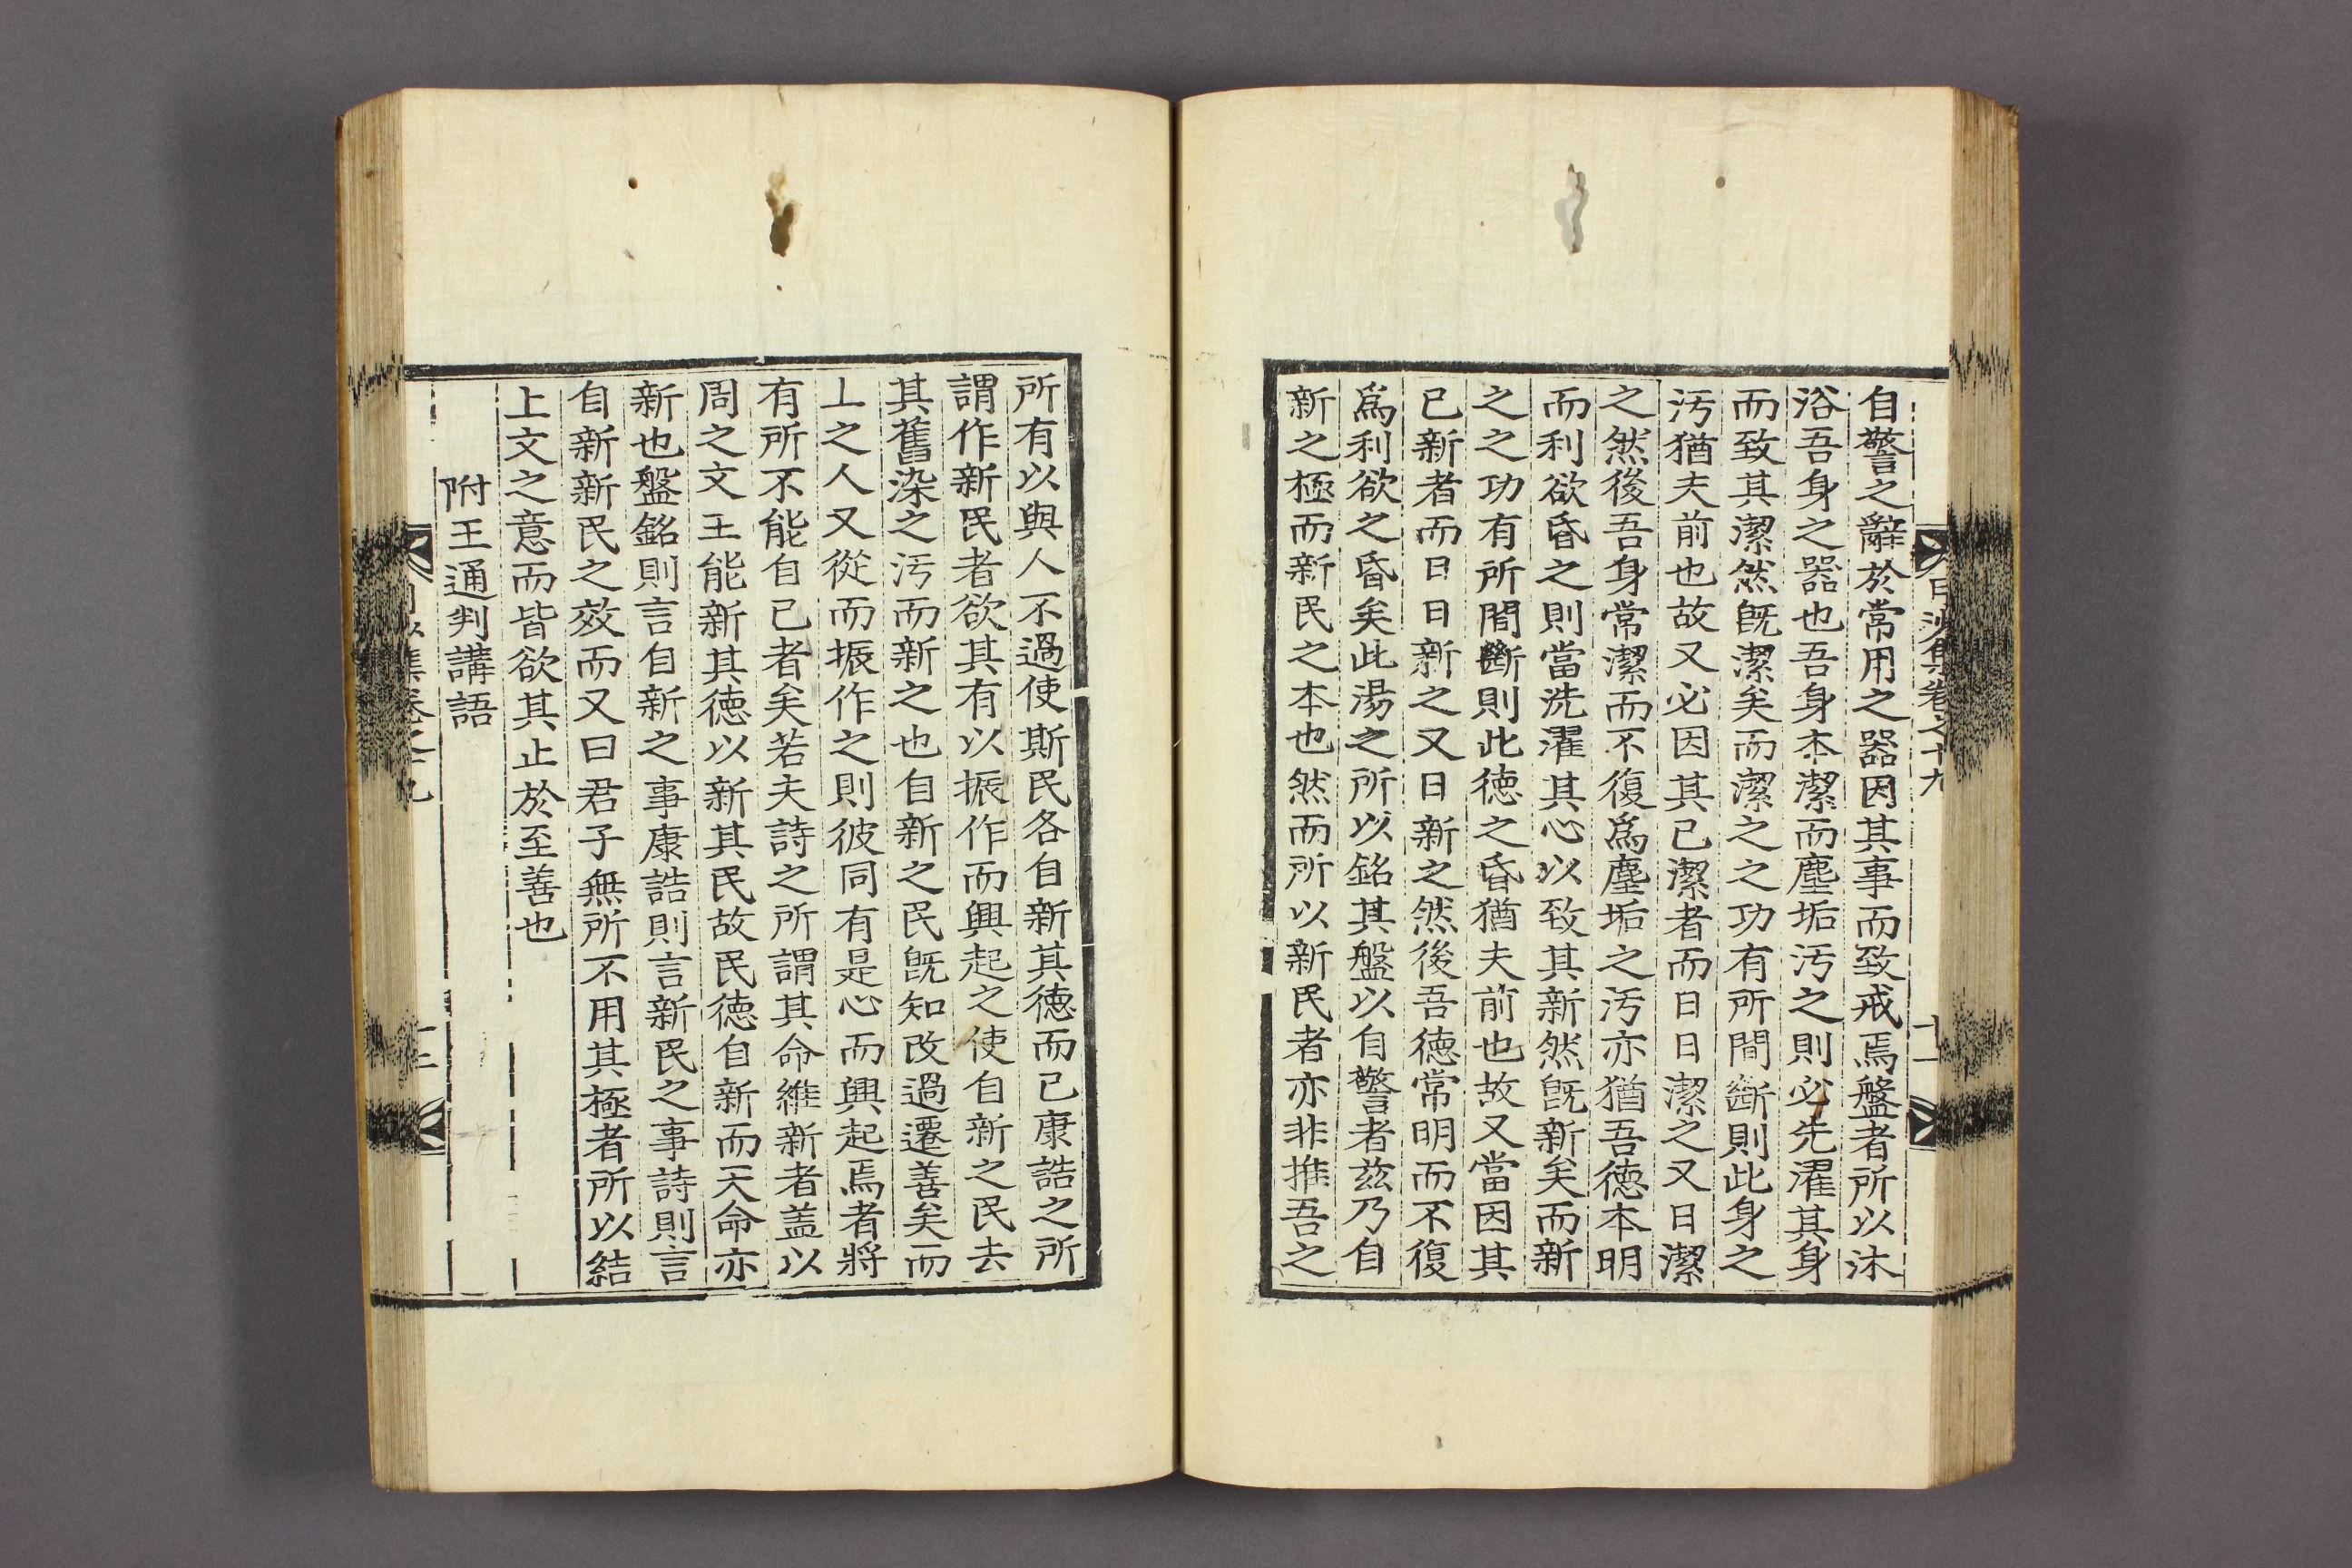 月沙集卷之十九
十一
自警之辭於常用之器因其事而致戒焉盤者所以沐
浴吾身之器也吾身本潔而塵垢汚之則必先濯其身
而致其潔然旣潔矣而潔之之功有所間斷則此身之
汚猶夫前也故又必因其已潔者而日日潔之又日潔
之然後吾身常潔而不復爲塵垢之汚亦猶吾德本明
而利欲昏之則當洗濯其心以致其新然旣新矣而新
之之功有所間斷則此德之昏猶夫前也故又當因其
已新者而日日新之又日新之然後吾德常明而不復
爲利欲之昏矣此湯之所以銘其盤以自警者茲乃自
新之極而新民之本也然而所以新民者亦非推吾之
所有以與人不過使斯民各自新其德而已康誥之所
謂作新民者欲其有以振作而興起之使自新之民去
其舊染之汚而新之也自新之民旣知改過遷善矣而
上之人又從而振作之則彼同有是心而興起焉者將
有所不能自已者矣若夫詩之所謂其命維新者盖以
周之文王能新其德以新其民故民德自新而天命亦
新也盤銘則言自新之事康誥則言新民之事詩則言
自新新民之效而又曰君子無所不用其極者所以結
上文之意而皆欲其止於至善也
附王通判講語